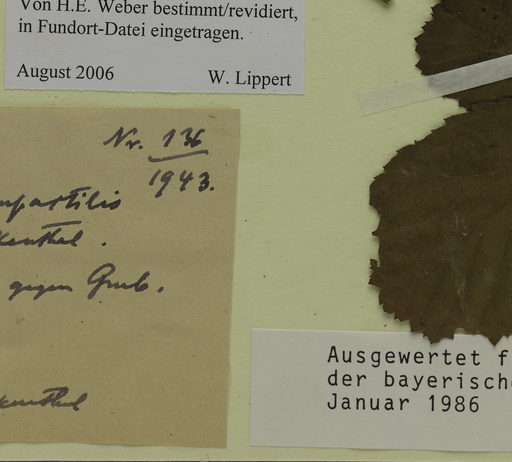 Von H.E. Weber bestimmt/revidiert,
in Fundort-Datei eingetragen.
August 2006 W. Lippert
Nr. 136
1943.
gegen Grub.
Ausgewertet f
der bayerische
Januar 1986